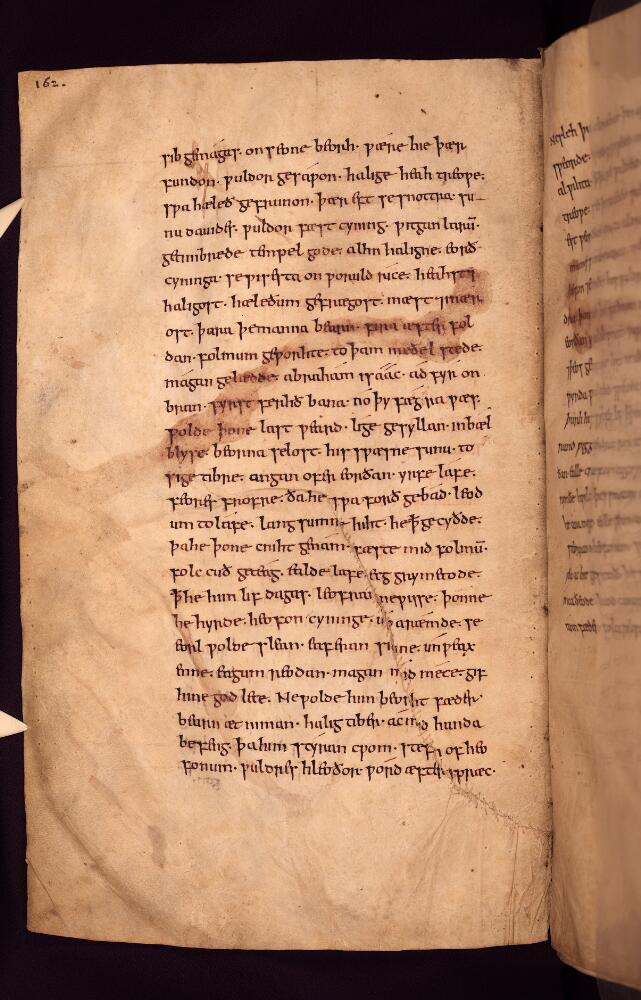 162.
sib gemagas. on seone beorh. ƿære hie þær
fundon. ƿuldor gesaƿon. halige heah treoƿe.
sƿa hæleð gefrunon. þær eft se snottra. su
nu dauides. ƿuldor fæst cyning. ƿitgan larū.
getimbrede tempel gode. alhn haligne. eorð
cyninga. se ƿisesta on ƿoruld rice. heahst ⁊
haligost. hæleðum gefrægost. mæst ⁊ mær
ost. þara þe manna bearn. fira æfter fol
dan. folmum geƿorhte. to þam meðel stede.
magan gelædde. abraham isáác. ad fyr on
bran. fyrst ferhð bana. no þy fægra ƿæs.
ƿolde þone last ƿeard. lige gesyllan. in bæl
blyse. beorna selost. his sƿæsne sunu. to
sige tibre. angan ofer eorðan. yrfe lafe.
feores frofre. ða he sƿa forð gebad. leod
um to lafe. lang sumne hiht. he ꝥ gecyðde.
þa he þone cniht genam. fæste mid folmū.
folc cuð geteag. ealde lafe. ecg grymetode.
ꝥ he him lif dagas. leofran ne ƿisse. þonne
he hyrde. heofon cyninge. úp aræmde. se
eorl ƿolde slean. eaferan sinne. unƿeax
enne. ecgum reodan. magan mid mece. gif
hine god lete. Ne ƿolde him beorht fæder.
bearn æt niman. halig tiber. ac mid handa
befeng. þa him styran cƿom. stefn of heo
fonum. ƿuldres hleoðor. ƿord æfter spræc.